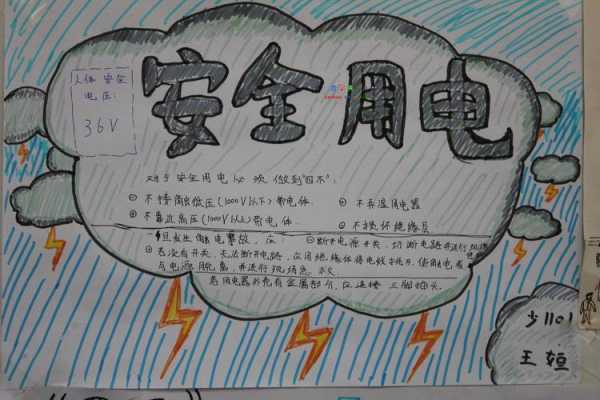 安全用电
人体安全
电压:
36V
对于安全用电必须做到"四不":
① 不接触低压(1000V以下)带电体. ③ 不弄湿用电器
② 不靠近高压(1000V以上)带电体. ④ 不损坏绝缘层
一旦发生触电事故, 应: ①断开电源开关, 切断电路并进行现场
②若没有开关, 无法断开电路, 应用绝缘体将电线挑开, 使触电者
与电源脱离, 并进行现场急救
若用电器外壳有金属部分, 应连接三脚插头.
少1101
王姮